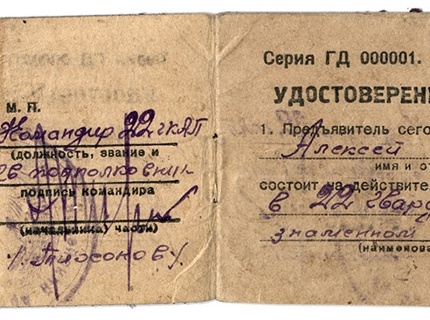 М. П.
Командир 22 ГКАП
(должность, звание и
подполковник
подпись командира
(начальника) части)
Серия ГД 000001.
УДОСТОВЕРЕНИ
1. Предъявитель сего
Алексей
имя и от
состоит на действите
в 22 Гвард
знаменном
(наименова